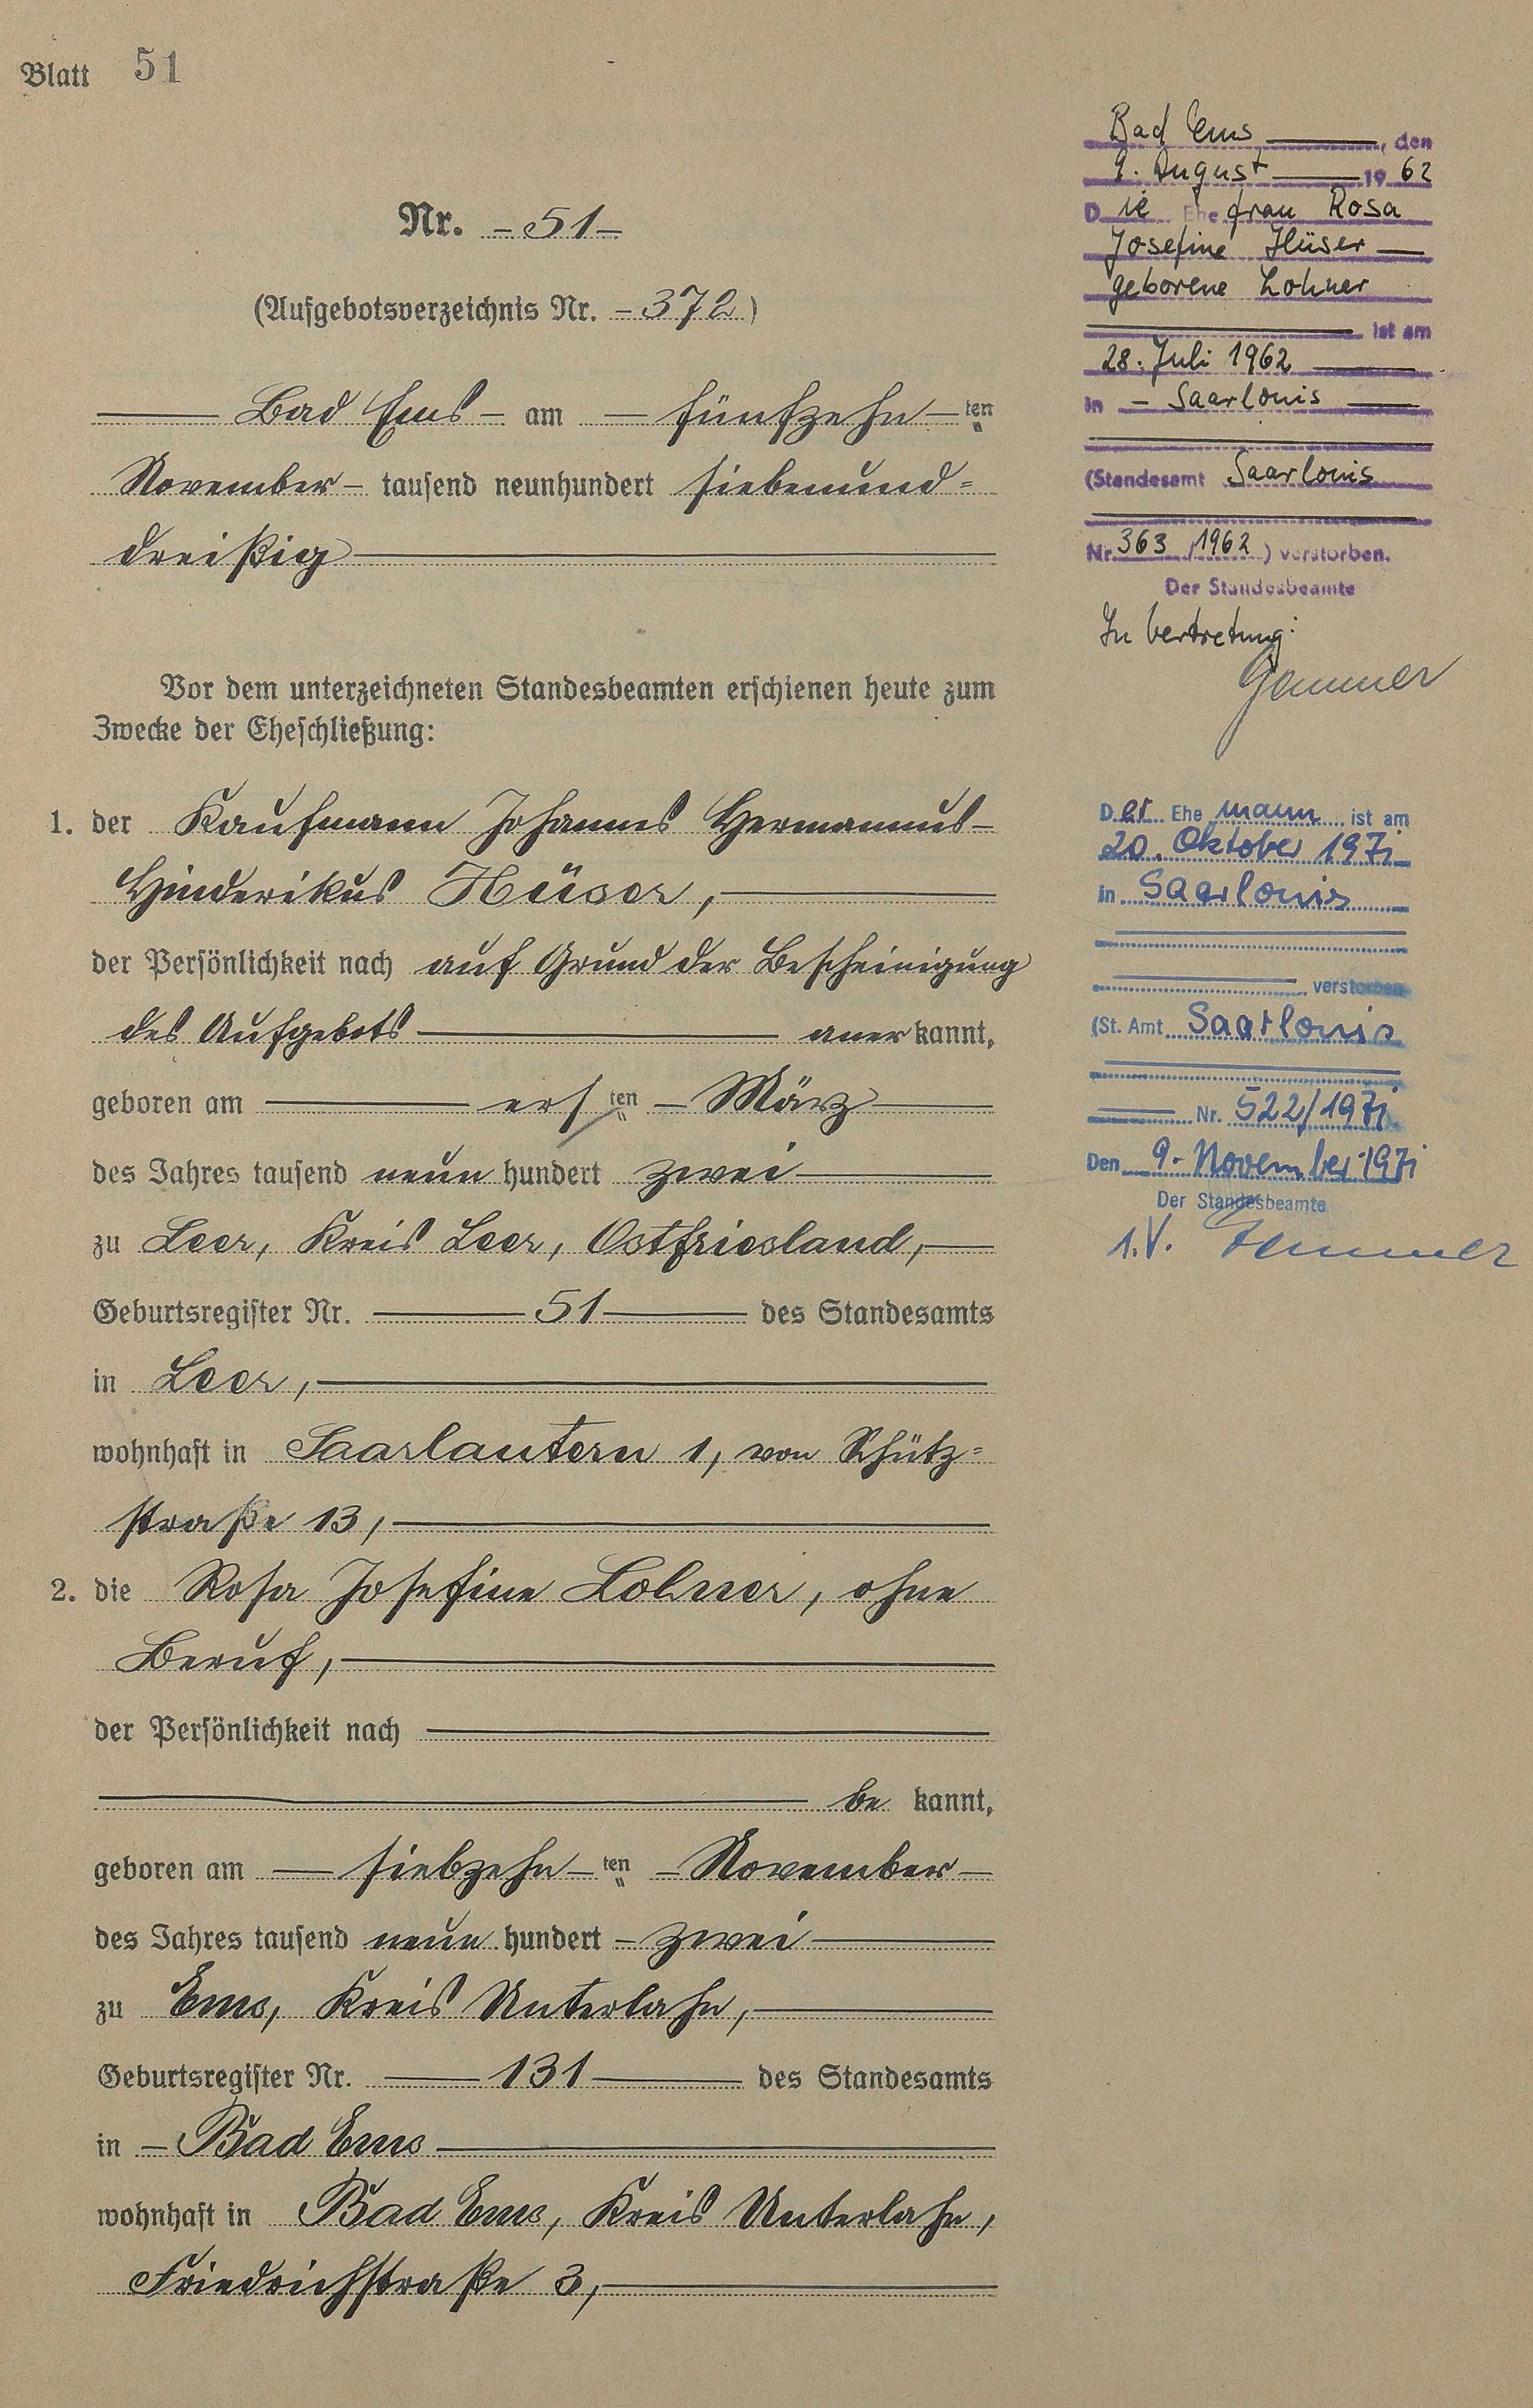 Blatt 51
Nr. – 51 –
(Aufgebotsverzeichnis Nr. – 372)
Bad Ems – am – fünfzehn – ten
November – tausend neunhundert siebenund=
dreißig
Vor dem unterzeichneten Standesbeamten erschienen heute zum
Zwecke der Eheschließung:
1. der Kaufmann Johannes Hermannus
Hinderikus Hüser,
der Persönlichkeit nach auf Grund der Bescheinigung
des Aufgebots anerkannt,
geboren am ersten – März
des Jahres tausend neun hundert zwei
zu Leer, Kreis Leer, Ostfriesland,
Geburtsregister Nr. 51 des Standesamts
in Leer,
wohnhaft in Saarlautern 1, von Schütz=
straße 13,
2. die Rosa Josefine Lohner, ohne
Beruf,
der Persönlichkeit nach
be kannt,
geboren am siebzehn – ten – November –
des Jahres tausend neun hundert – zwei
zu Ems, Kreis Unterlahn,
Geburtsregister Nr. 131 des Standesamts
in – Bad Ems
wohnhaft in Bad Ems, Kreis Unterlahn,
Friedrichstraße 3,
Bad Ems, den
9. August 19 62
Die Ehefrau Rosa
Josefine Hüser
geborene Lohner
ist am
28. Juli 1962
in – Saarlouis
(Standesamt Saarlouis
Nr. 363 / 1962) verstorben.
Der Standesbeamte
In Vertretung:
Der Ehe mann ist am
20. Oktober 1971
in Saarlouis
verstorben
(St. Amt Saarlouis
Nr. 522/1971
Den 9. November 1971
Der Standesbeamte
i.V.